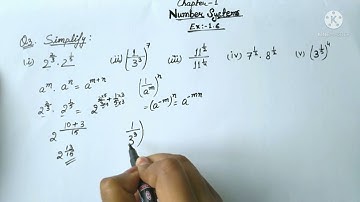 Chapter-1
Number Systems
Ex:-1.6
Q3. Simplify:
(i) 2^(2/3) · 2^(1/5) (ii) (1/3^3)^7 (iii) 11^(1/2)/11^(1/4) (iv) 7^(1/2) · 8^(1/2) (v) (3^(1/2))^4
a^m · a^n = a^(m+n) (1/a^m)^n
2^(2/3) · 2^(1/5) = 2^(2×5/3×5 + 1×3/5×3) = (a^-m)^n = a^-mn
2^((10+3)/15) (1/3^3)
2^(13/15)